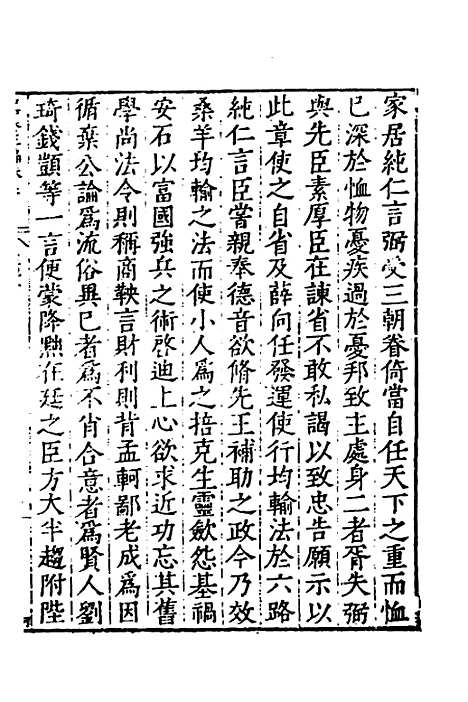 家居純仁言弼受三朝眷倚當自任天下之重而恤
已深於恤物憂疾過於憂邦致主處身二者胥失弼
與先臣素厚臣在諫省不敢私謁以致忠告願示以
此章使之自省及薛向任發運使行均輸法於六路
純仁言臣嘗親奉德音欲脩先王補助之政今乃效
桑羊均輸之法而使小人爲之掊克生靈歛怨基禍
安石以富國強兵之術啓迪上心欲求近功忘其舊
學尚法令則稱商鞅言財利則背孟軻鄙老成爲因
循棄公論爲流俗異已者爲不肖合意者爲賢人劉
琦錢顗等一言便蒙降黜在廷之臣方大半趨附陛